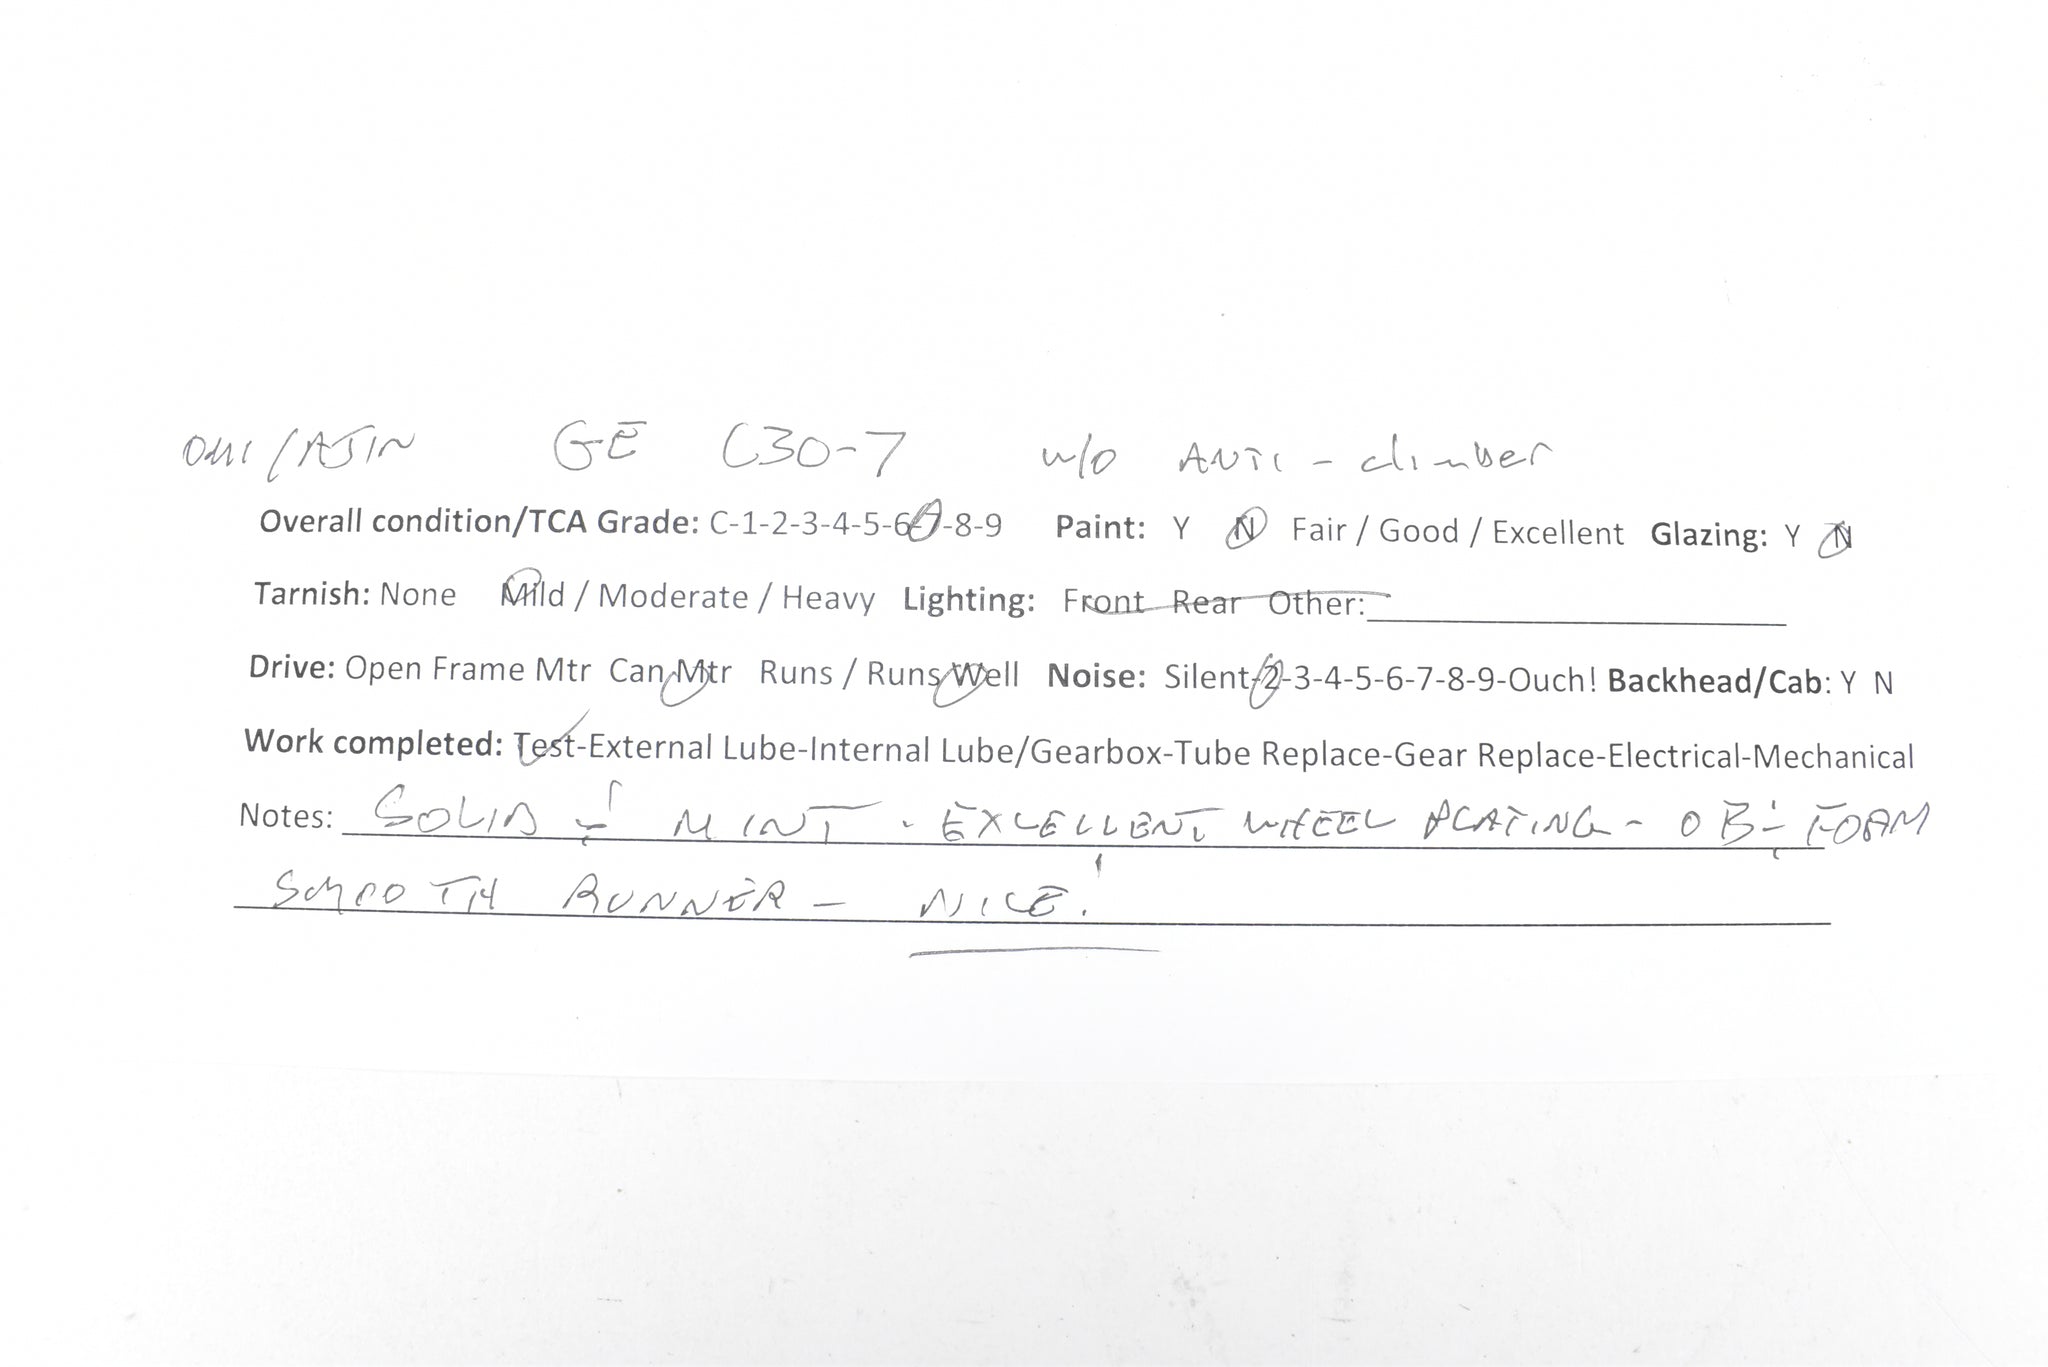 OMI/AJIN GE C30-7 w/o ANTI-climber
Overall condition/TCA Grade: C-1-2-3-4-5-6-7-8-9 Paint: Y N Fair / Good / Excellent Glazing: Y N
Tarnish: None Mild / Moderate / Heavy Lighting: Front Rear Other:
Drive: Open Frame Mtr Can Mtr Runs / Runs Well Noise: Silent-2-3-4-5-6-7-8-9-Ouch! Backhead/Cab: Y N
Work completed: Test-External Lube-Internal Lube/Gearbox-Tube Replace-Gear Replace-Electrical-Mechanical
Notes: SOLID & MINT - EXCELLENT WHEEL PLATING - OB & FOAM
SMOOTH RUNNER - NICE!